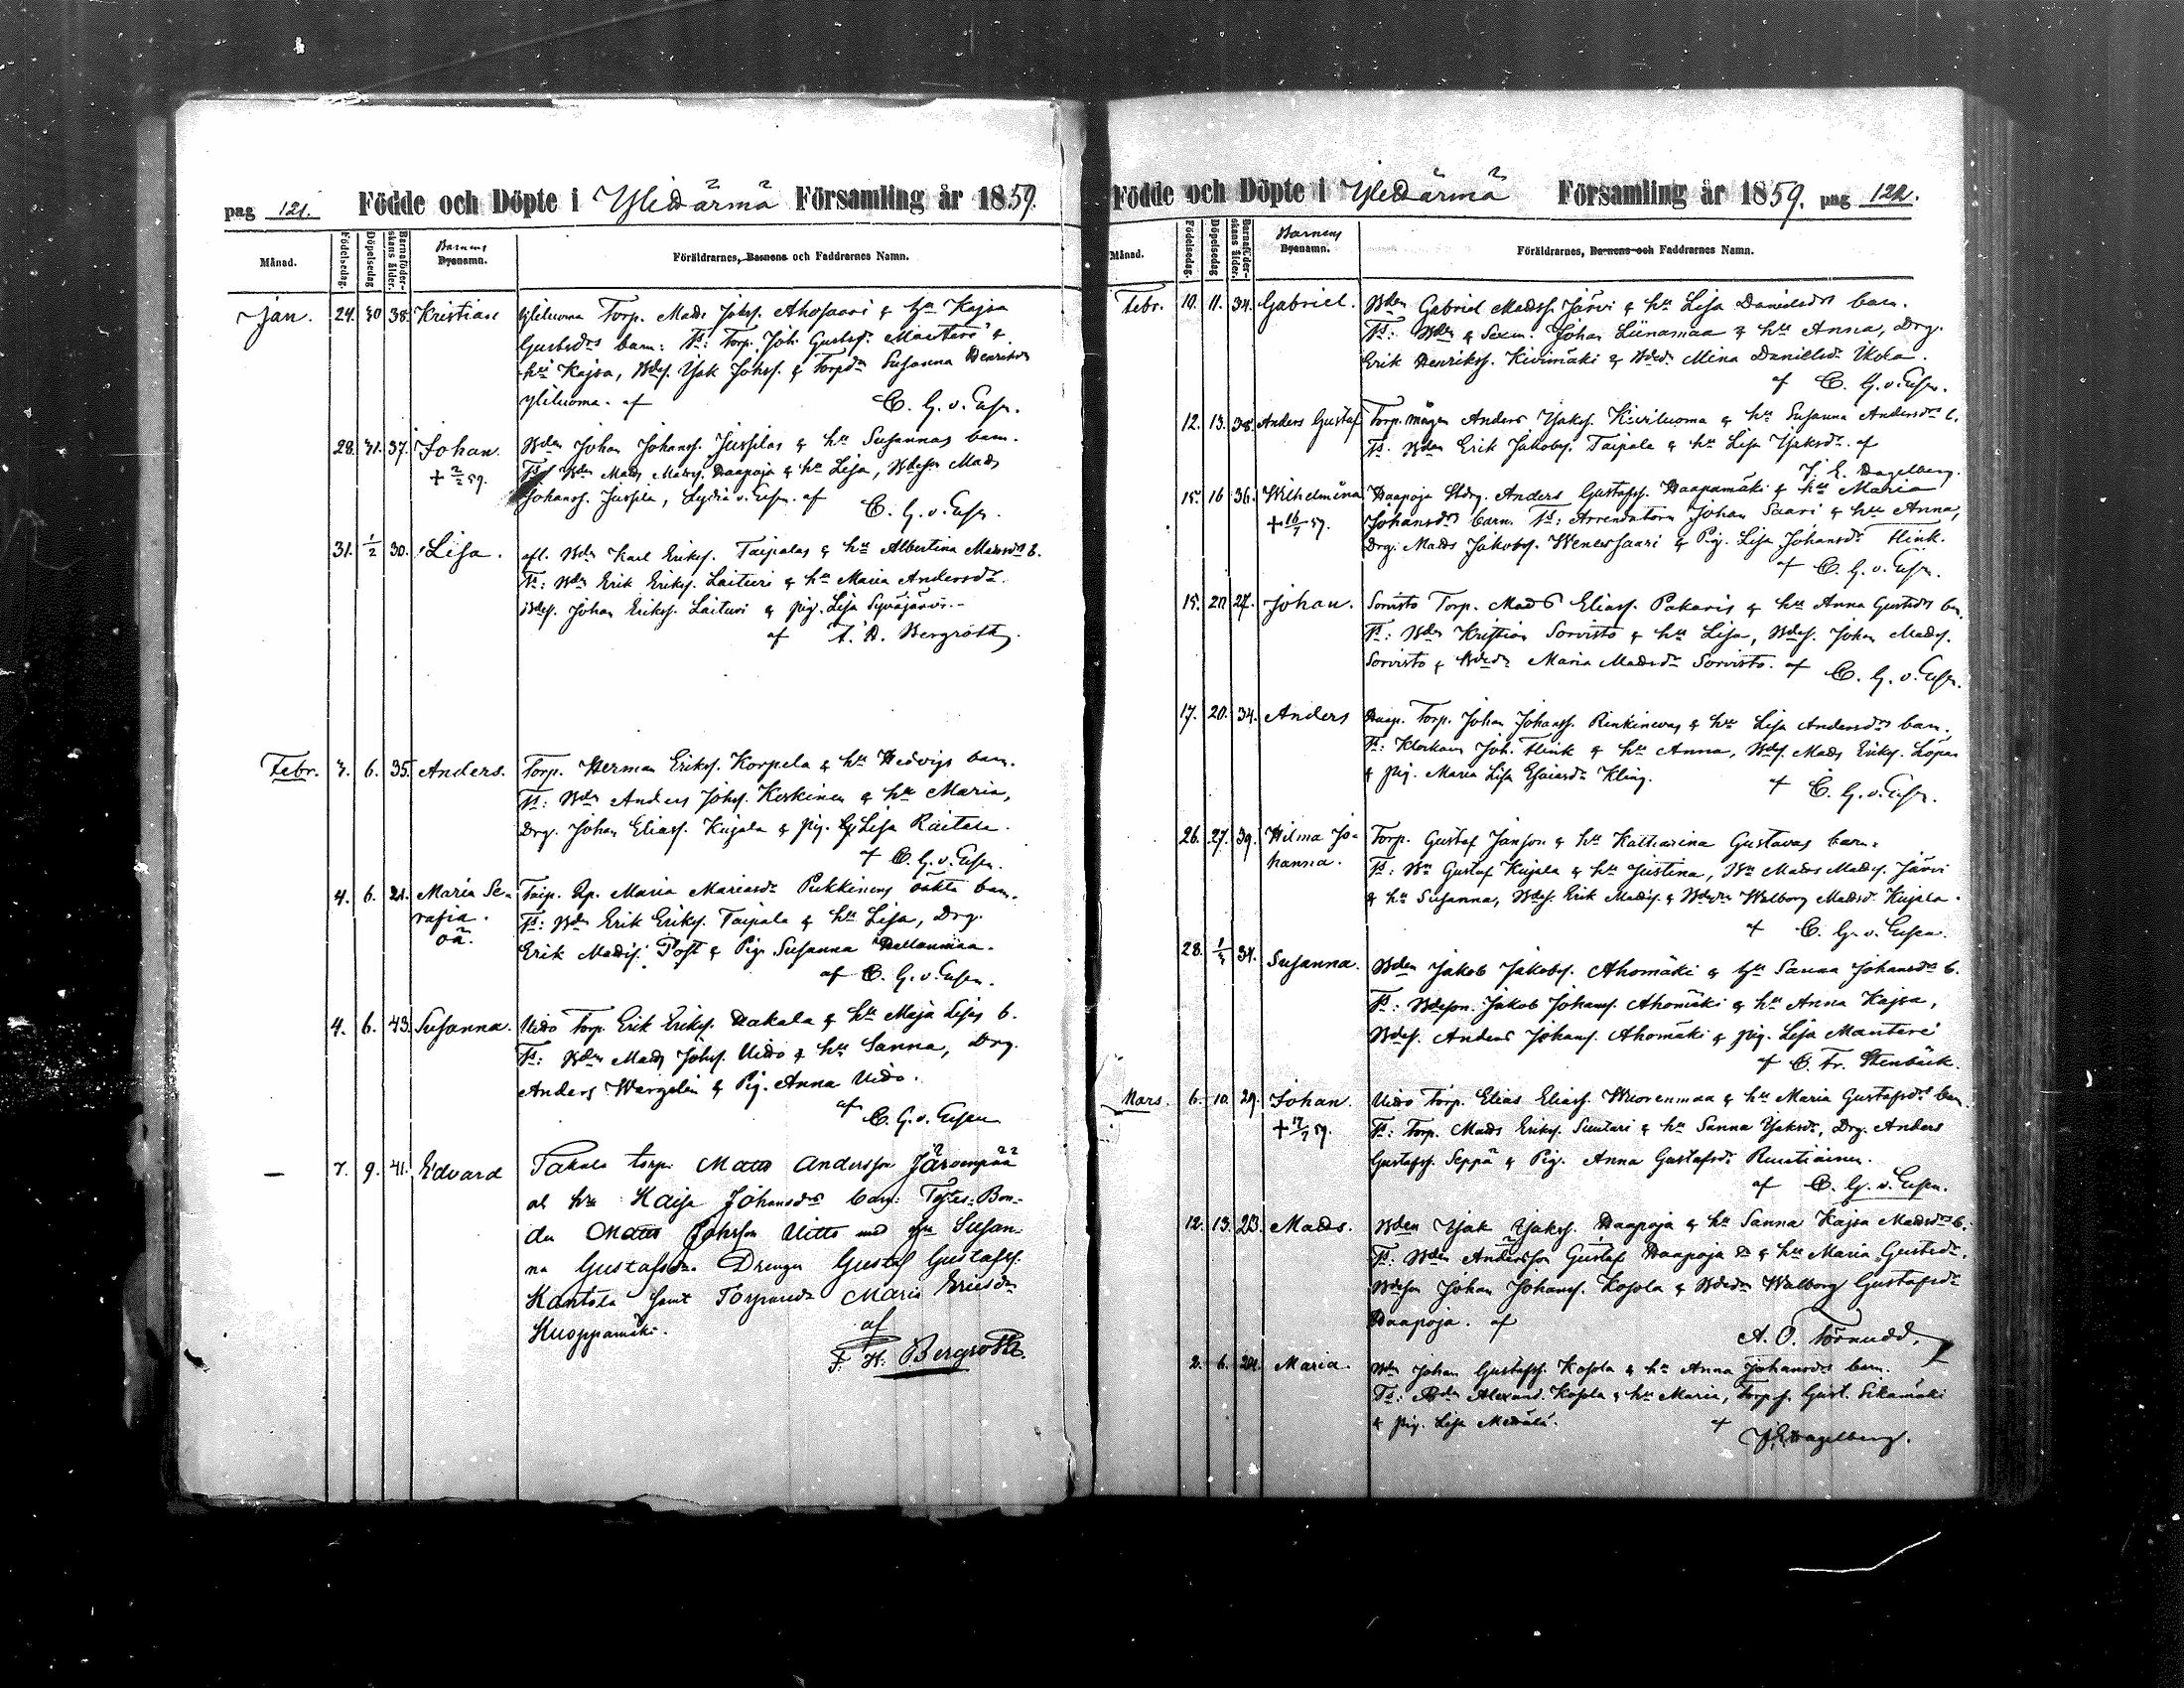 pag 121. Födde och Döpte i Ylihärmä Församling år 1859.
Månad. Födelsedag. Döpelsedag Barnaföder-skans ålder. Barnens Byenamn. Föräldrarnes, Barnens och Faddrarnes Namn.
Jan. 24. 30 38. Kristian Yliluoma Torp. Mads Johss. Ahosaari & hu Kajsa
Gustsdrs barn: Ts: Torp. Joh. Gustafs. Mantere &
hu Kajsa, Bdes. Isak Johss. & Torpdr Susanna Henriksdr
Yliluoma. af C. G. v. Essen.
28. 31. 37. Johan. Bden Johan Johanss. Jussilas & hu Susannas barn.
+ 2/2 59. Ts Bden Mads Madss. Haapoja & hu Lisa, Bdeson Mads
Johanss. Jussila, Lydia v. Essen. af C. G. v. Essen.
31. 1/2 30. Lisa. afl. Bdn Karl Erikss. Taipalas & hu Albertina Madsdrs b.
Ts: Bdn Erik Erikss. Laituri & hu Maria Andersdr.
Bdes. Johan Erikss. Laituri & pig. Lisa Syväjärvi.
af F. H. Bergroth.
Febr. 3. 6. 35. Anders. Torp. Herman Erikss. Korpela & hu Hedvigs barn.
Ts: Bdn Anders Johss. Keskinen & hu Maria,
Drg. Johan Eliass. Kujala & pig. Lisa Raitala.
af C. G. v. Essen.
4. 6. 21. Maria Se- Taip. Maria Mariasdr Pukkinens oäkta barn.
rafia. Ts: Bdn Erik Erikss. Taipala & hu Lisa, Drg.
oä. Erik Madss. Post & Pig. Susanna Hallanmaa.
af C. G. v. Essen.
4. 6. 43. Susanna. Uido Torp. Erik Erikss. Hakala & hu Maja Lisas b.
Ts: Bdn Mads Johss. Uido & hu Sanna, Drg.
Anders Wargelin & Pig. Anna Uido.
af C. G. v. Essen
— 7. 9. 41. Edvard Pakala torp. Matts Andersson Järvenpää
och hu Kaisa Johansdrs barn: Testes: Bon-
den Matts Johsson Uitto med hu Susan-
na Gustafsdr. Drengen Gustaf Gustafss.
Kantola samt Torparedr Maria Ericsdr
Kuoppamäki. af
F. H. Bergroth.
Födde och Döpte i Ylihärmä Församling år 1859. pag 122.
Månad. Födelsedag. Döpelsedag Barnaföder-skans ålder. Barnens Byenamn. Föräldrarnes, Barnens och Faddrarnes Namn.
Febr. 10. 11. 34. Gabriel. Bden Gabriel Madss. Järvi & hu Lisa Danielsdrs barn.
Ts: Bdn & Sexm. Johan Liinamaa & hu Anna, Drg.
Erik Henrikss. Kivimäki & Bdedr Mina Danielsdr Ikola.
af C. G. v. Essen.
12. 13. 38. Anders Gustaf Torp. mågen Anders Isakss. Kiviluoma & hu Susanna Andersdrs b.
Ts. Bdn Erik Jakobss. Taipale & hu Lisa Isaksdr. af
J. E. Dagelberg.
15. 16 36. Wilhelmina Haapoja Stdrg. Anders Gustafss. Haapamäki & hu Maria
+ 16/7 59. Johansdrs barn. Ts: Arrendatorn Johan Saari & hu Anna,
Drg. Mads Jakobss. Wenessaari & Pig. Lisa Johansdr Flink.
af C. G. v. Essen.
15. 20 27. Johan. Sorvisto Torp. Mads Eliass. Pakaris & hu Anna Gustsdrs barn.
Ts: Bdn Kristian Sorvisto & hu Lisa, Bdes. Johan Madss.
Sorvisto & Bdedr Maria Madsdr Sorvisto. af C. G. v. Essen.
17. 20. 34. Anders Haap. Torp. Johan Johanss. Rinkinevas & hu Lisa Andersdrs barn.
Ts: Klockaren Joh. Flink & hu Anna, Bdes. Mads Erikss. Löpar
& pig. Maria Lisa Esaiasdr Kling. af C. G. v. Essen.
26. 27. 39. Hilma Jo- Torp. Gustaf Janson & hu Katharina Gustavas barn.
hanna. Ts: Bn Gustaf Kujala & hu Justina, Bn Mads Madss. Järvi
& hu Susanna, Bdes. Erik Madss & Bdedr Walborg Madsdr Kujala.
af C. G. v. Essen.
28. 1/3 34. Susanna. Bden Jakob Jakobss. Ahomäki & hu Sanna Johansdrs b.
Ts: Bdeson Jakob Johanss. Ahomäki & hu Anna Kajsa,
Bdes. Anders Johanss. Ahomäki & pig. Lisa Mantere
af C. Fr. Stenbäck.
Mars. 6. 10. 29. Johan. Uido Torp. Elias Eliass. Wuorenmaa & hu Maria Gustafsdrs barn.
+ 17/7 59. Ts: Torp. Mads Erikss. Suutari & hu Sanna Isaksdr, Drg. Anders
Gustafss. Seppä & Pig. Anna Gustafsdr Ruustiainen.
af C. G. v. Essen.
12. 13. 23. Mads. Bden Isak Isakss. Haapoja & hu Sanna Kajsa Madsdrs b.
Ts. Bdn Andersson Gustaf Haapoja & hu Maria Gustsdr.
Bdeson Johan Johanss. Kosola & Bdedr Walborg Gustafsdr
Haapoja. af A. O. Törnudd.
2. 6. 24. Maria. Bdn Johan Gustafss. Kosola & hu Anna Johansdrs barn.
Ts: Bdn Alexand. Kosola & hu Maria, Torps. Gust. Sikamäki
& pig. Lisa Meskälä. af
J. E. Dagelberg.